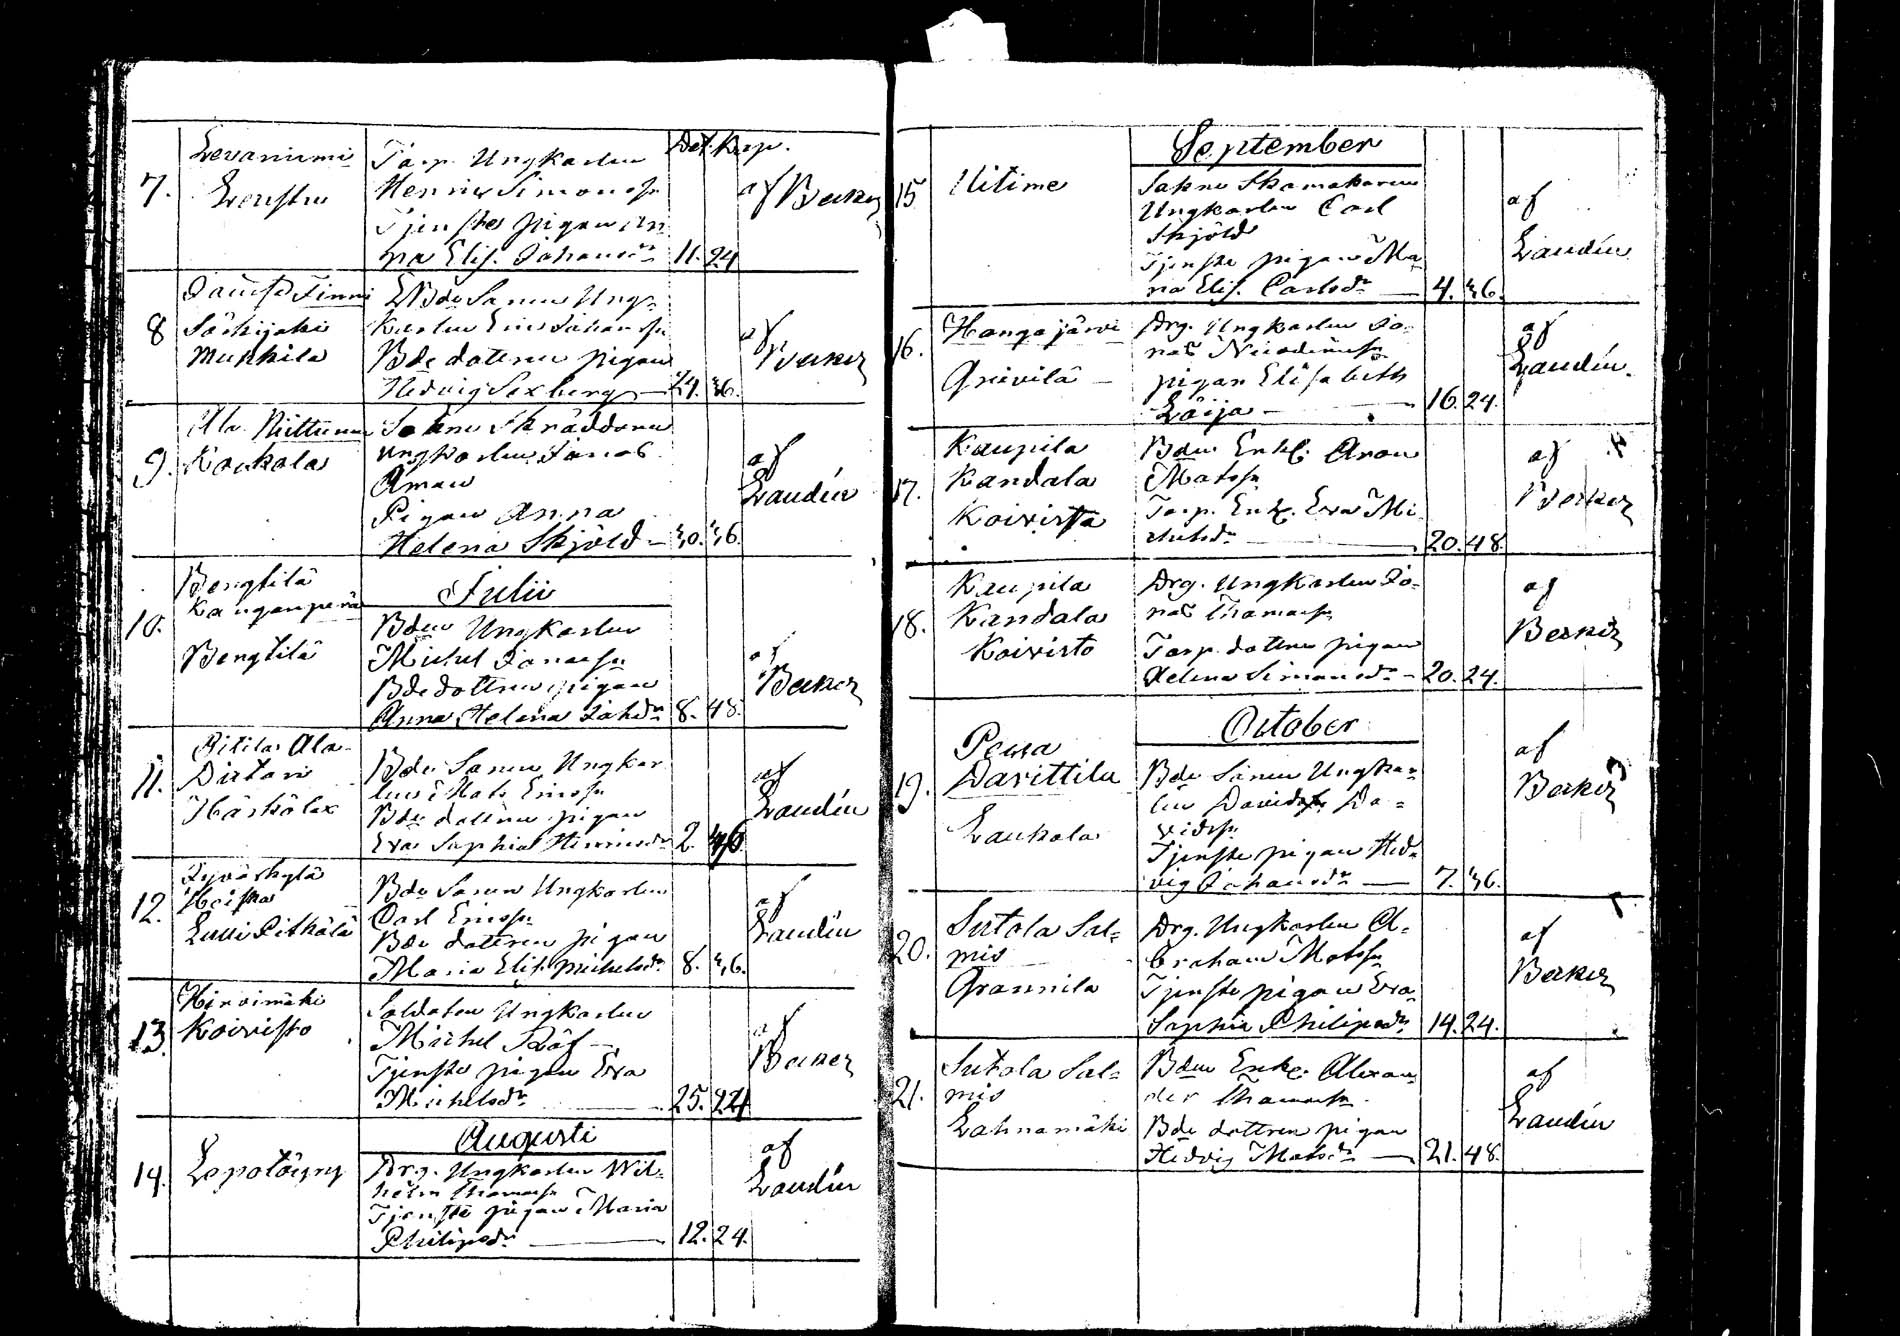 Dat. Kop.
7. Levaniemi
Torp. Ungkarlen
Henric Simonss.
Tjenste pigan An
na Elis. Johansdr 11. 24
af Becker
8 Finni
Bde Sonen Ung-
karlen Eric Johanss.
Bde dottren pigan
Hedvig Sexberg 24. 36.
af Becker
9. Ala Riittunen
Koukola
Sokne Skräddaren
ungkarlen Jonas
Åman
Pigan Anna
Helena Skjöld 30. 36.
af
Laudin
Julii
10. Bengtilä
Kanganperä
Bengtilä
Bden Ungkarlen
Michel Jonass.
Bde dottren pigan
Anna Helena Johdr 8. 48.
af
Becker
11. Pitila Ala
Härkölä
Bde Sonen Ungkar
len Mats Ericss.
Bde dottren pigan
Eva Sophia Henricsdr 2. 46
af
Laudin
12. Jyväskylä
Heiska
Lassi Pitkälä
Bde Sonen Ungkarlen
Carl Ericss.
Bde dottren pigan
Maria Elis. Michelsdr 8. 36.
af
Laudin
13. Hirvimäki
Koivisto
Soldaten Ungkarlen
Michel Räf
Tjenste pigan Eva
Michelsdr 25. 24
af
Becker
Augusti
14. Lapotöyry
Drg. Ungkarlen Wil-
helm Thomass.
Tjenste pigan Maria
Philipsdr 12. 24.
af
Laudin
September
15 Uitime
Sokne Skomakaren
Ungkarlen Carl
Skjöld
Tjenste pigan Ma
ria Elis. Carlsdr 4. 36.
af
Laudin
16. Hangajärvi
Drg. Ungkarlen Jo-
nas Nicodemuss.
pigan Elisabeth
Löija 16. 24.
af
Laudin.
17. Kaupila
Kandala
Koivisto
Bden Enkl. Aron
Matss.
Torp. Enk. Eva Mi
chelsdr 20. 48
af
Becker
18. Kaupila
Kandala
Koivisto
Drg. Ungkarlen Jo-
nas Thomass.
Torp. dottren pigan
Helena Simonsdr 20. 24.
af
Becker
October
19. Pesса
Davittila
Laukola
Bde Sonen Ungkar-
len David Da-
vidss.
Tjenste pigan Hed-
vig Johansdr 7. 36.
af
Becker
20. Sutola Sal-
mis
Grannila
Drg. Ungkarlen A-
braham Matss.
Tjenste pigan Eva
Sophia Philipsdr 14. 24.
af
Becker
21. Sutola Sal-
mis
Lahnamäki
Bden Enkl. Alexan-
der Thomass.
Bde dottren pigan
Hedvig Matsdr 21. 48.
af
Laudin